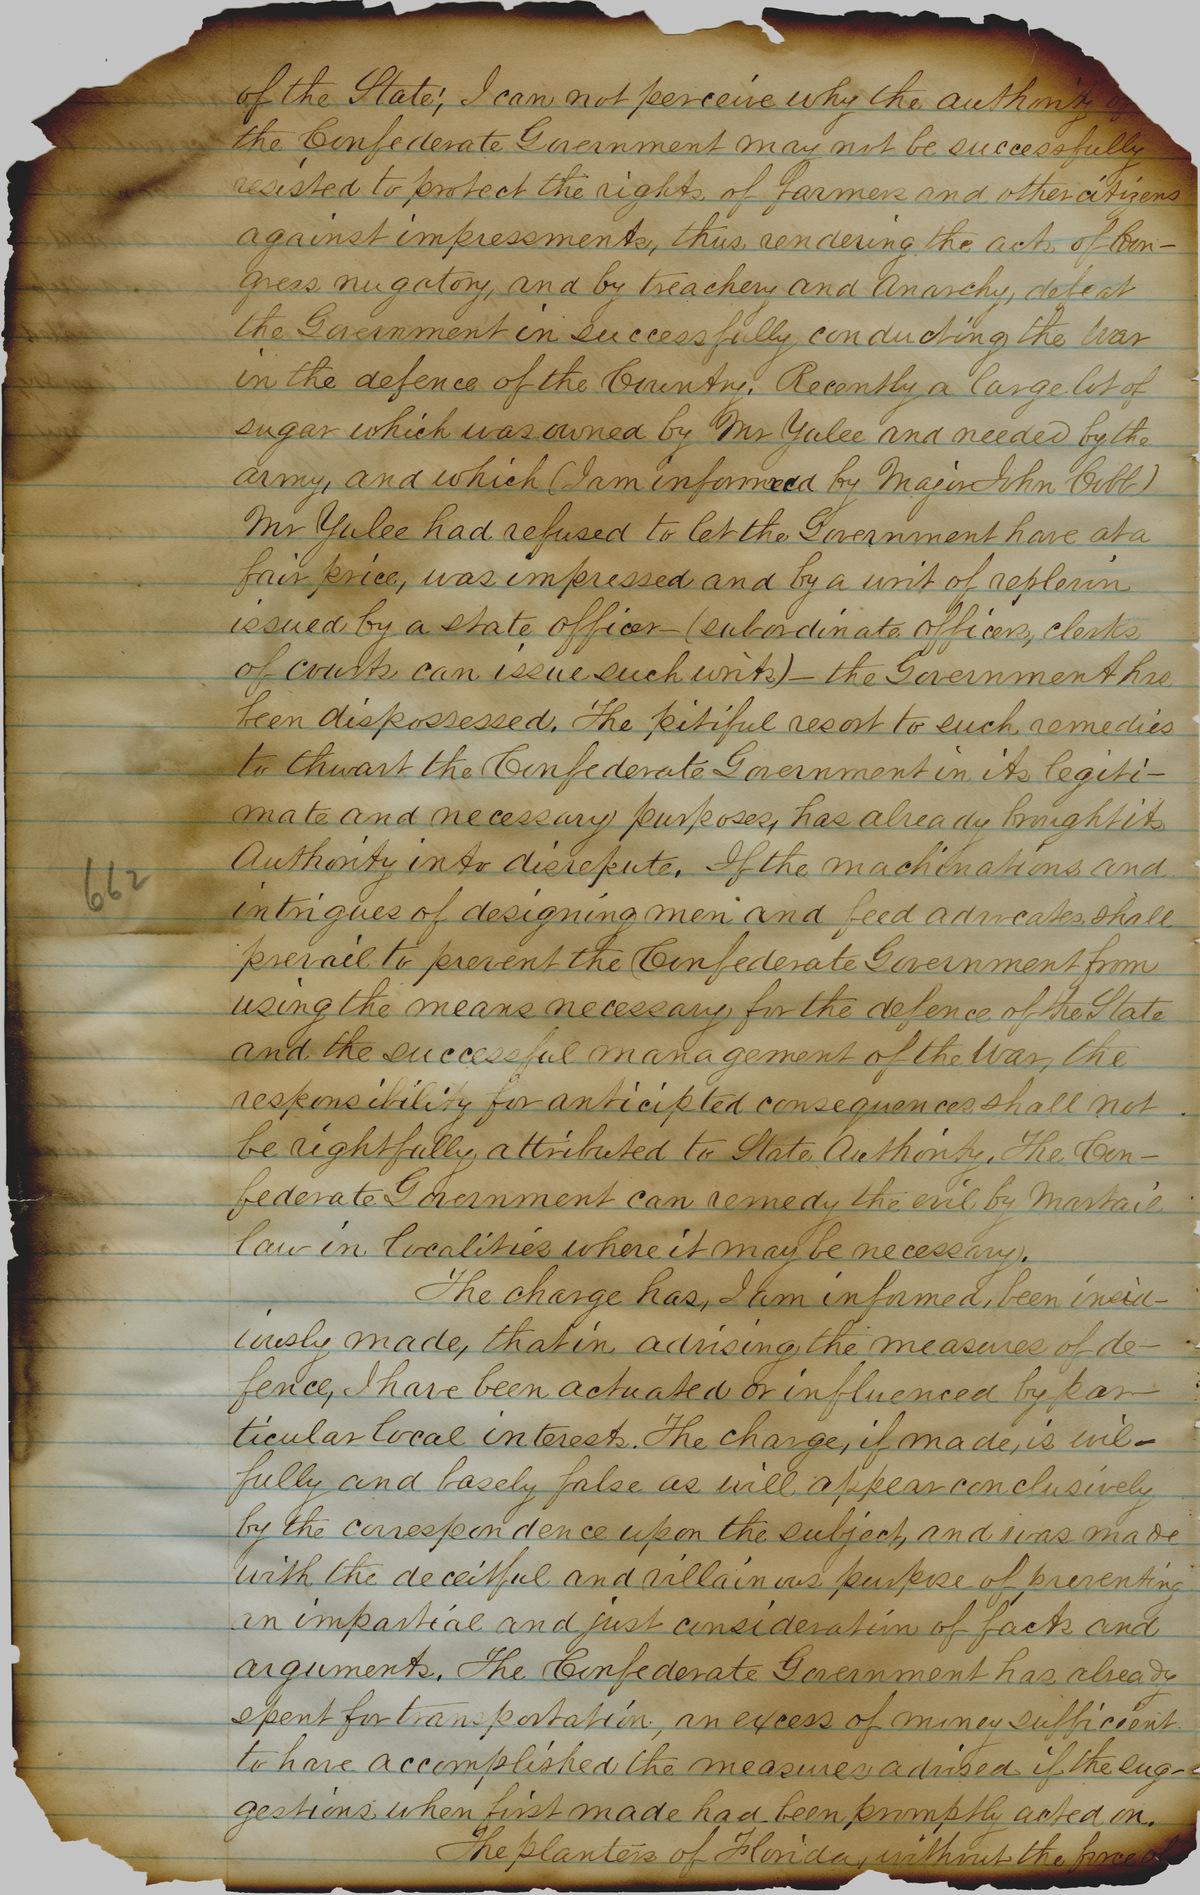 of the State; I can not perceive why the authority of
the Confederate Government may not be successfully
resisted to protect the rights of farmers and other citizens
against impressments, thus rendering the acts of Con-
gress nugatory, and by treachery and Anarchy, defeat
the Government in successfully conducting the War
in the defence of the Country. Recently a large lot of
sugar which was owned by Mr Yulee and needed by the
army, and which (I am informed by Major John Cobb)
Mr Yulee had refused to let the Government have at a
fair price, was impressed and by a writ of replevin
issued by a state officer—(subordinate officers, clerks
of courts can issue such writs)—the Government has
been dispossessed. The pitiful resort to such remedies
to thwart the Confederate Government in its legiti-
mate and necessary purposes, has already brought its
Authority into disrepute. If the machinations and
662
intrigues of designing men and feed advocates shall
prevail to prevent the Confederate Government from
using the means necessary for the defence of the State
and the successful management of the War, the
responsibility for anticipted consequences shall not
be rightfully attributed to State Authority. The Con-
federate Government can remedy the evil by Martail
law in localities where it may be necessary.
The charge has, I am informed, been insid-
iously made, that in advising the measures of de-
fence, I have been actuated or influenced by par-
ticular local interests. The charge, if made, is wil-
fully and basely false as will appear conclusively
by the correspondence upon the subject, and was made
with the deceitful and villainous purpose of preventing
an impartial and just consideration of facts and
arguments. The Confederate Government has already
spent for transportation, an excess of money sufficient
to have accomplished the measures advised if the sug-
gestions when first made had been promptly acted on.
The planters of Florida, without the force of